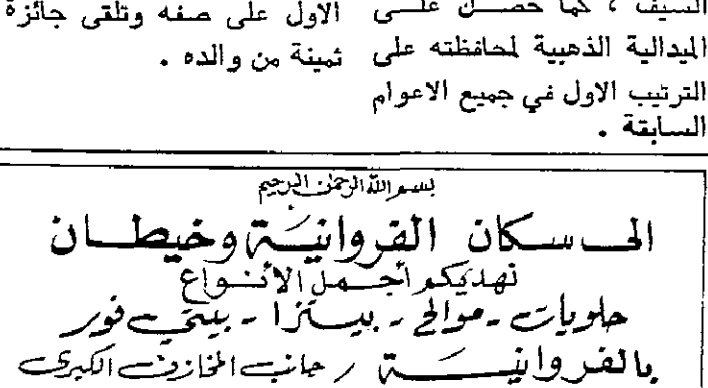 السيف ، كما حصل على
الميدالية الذهبية لمحافظته على
الترتيب الاول في جميع الاعوام
السابقة .
الاول على صفه وتلقى جائزة
ثمينة من والده .
بسم الله الرحمن الرحيم
الى سكان الفروانية وخيطان
نهديكم أجمل الأنواع
حلويات - موالح - بيتزا - بيتي فور
بالفروانية / جانب المخازن الكبرى